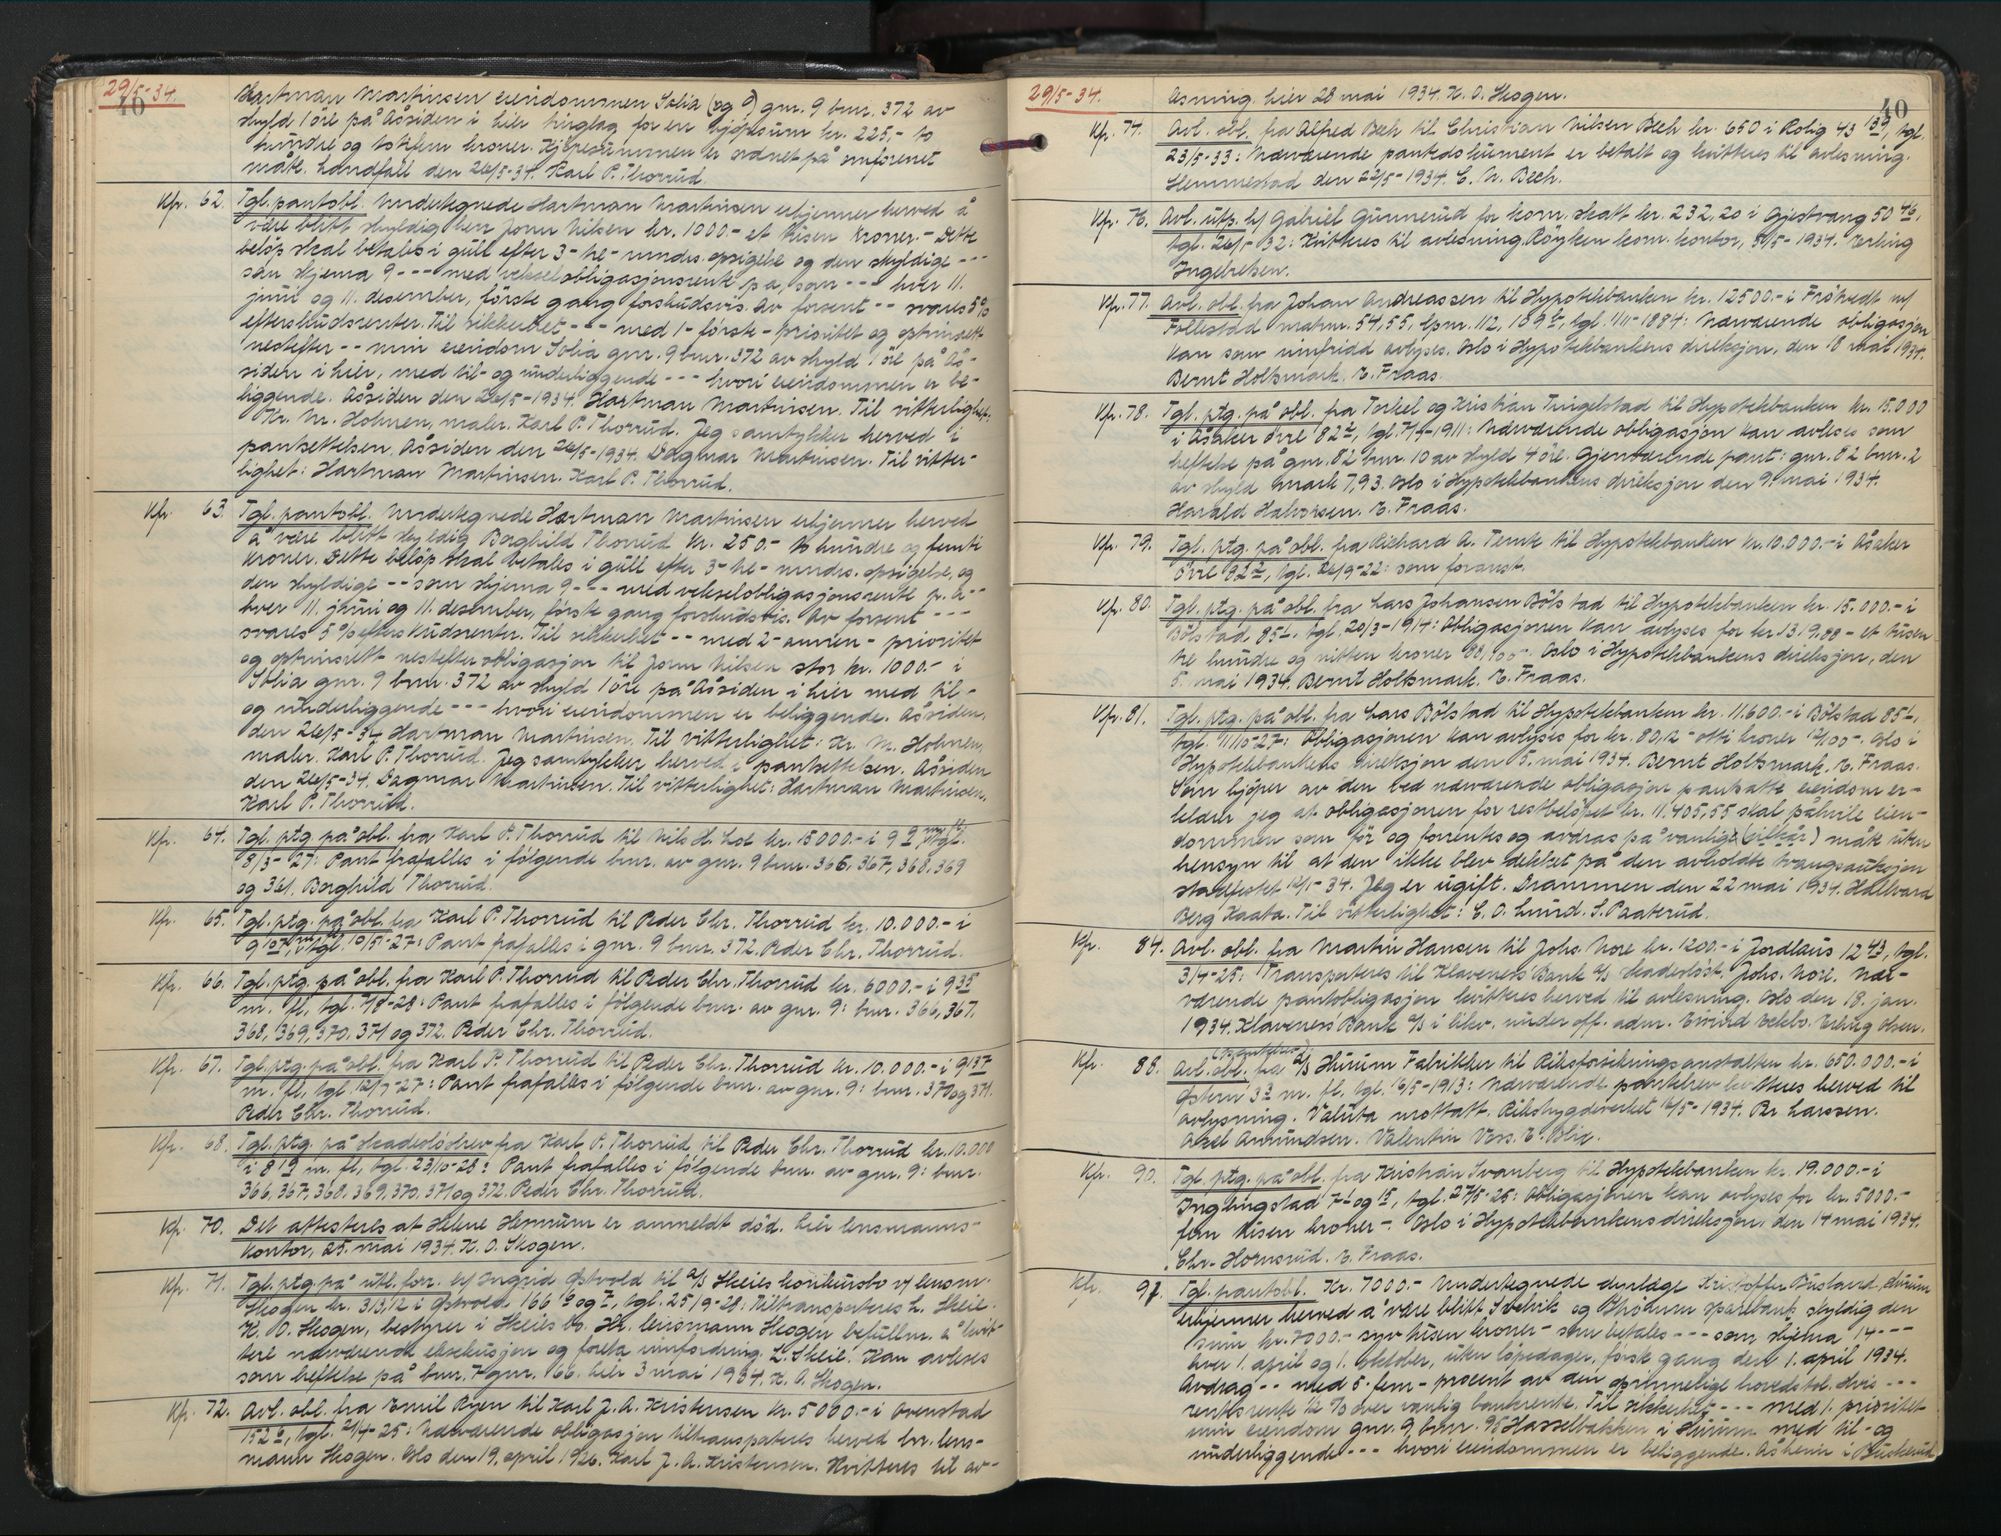 29/5-34.
40
Hartman Martinsen eiendommen Solia (og ) gnr. 9 bnr. 372 av
skyld 1 öre på Åssiden i hier tinglag for en kjöpesum kr. 225,- to
hundre og totifem kroner. Kjöpesummen er ordnet på omforenet
måte. Landfall den 26/5-34. Karl P. Thorrud.
Kfr. 62. Tgl. pantobl. Undertegnede Hartman Martinsen erkjenner herved å
være blitt skyldig herr Jonn Nilsen kr. 1000.- et tusen kroner.- Dette
belöp skal betales i gull efter 3- tre- mndrs. opsigelse og den skyldige ---
som skjema 9 --- med vekselobligasjonsrente p.a, som --- hver 11.
juni og 11. desember, förste gang forskudsvis. Av forsent -- svares 5%
efterskudsrenter. Til sikkerhet --- med 1- förste - prioritet og optrinsrett
nestefter -- min eiendom Solia gnr. 9 bnr. 372 av skyld 1 öre på Ås-
siden i hier, med til- og underliggende --- hvori eiendommen er be-
liggende. Åssiden den 26/5-1934. Hartman Martinsen. Til vitterlighet:
Kr. M. Holmen, maler. Karl P. Thorrud. Jeg samtykker herved i
pantsettelsen. Åssiden den 26/5-1934. Dagmar Martinsen. Til vitter-
lighet: Hartman Martinsen. Karl P. Thorrud.
Kfr. 63. Tgl. pantobl. Undertegnede Hartman Martinsen erkjenner herved
å være blitt skyldig Borghild Thorrud kr. 250.- to hundre og femti
kroner. Dette belöp skal betales i gull efter 3- tre- mndrs. opsigelse, og
den skyldige -- som skjema 9 --- med vekselobligasjonsrente p. a --
hver 11. juni og 11. desember, förste gang forskudsvis. Av forsent ---
svares 5% efterskudsrenter. Til sikkerhet -- med 2- annen - prioritet
og optrinsrett nestefter obligasjon til Jonn Nilsen stor kr. 1000.- i
Solia gnr. 9 bnr. 372 av skyld 1 öre på Åssiden i hier med til-
og underliggende --- hvori eiendommen er beliggende. Åssiden,
den 26/5-34 Hartman Martinsen. Til vitterlighet: Kr. M. Holmen,
maler. Karl P. Thorrud. Jeg samtykker herved i pantsettelsen. Åssiden
den 26/5-34. Dagmar Martinsen. Til vitterlighet: Hartman Martinsen.
Karl P. Thorrud.
Kfr. 64. Tgl. ptg. på obl. fra Karl P. Thorrud til Nils H. Loe kr. 15000.- i 9 9 m. fl. tgl.
8/3-27: Pant frafalles i fölgende bnr. av gnr. 9 bnr. 366, 367, 368, 369
og 361. Borghild Thorrud.
Kfr. 65. Tgl. ptg. på obl. fra Karl P. Thorrud til Peder Chr. Thorrud kr. 10.000.- i
9 107 m. fl, tgl. 10/5-27: Pant frafalles i gnr. 9 bnr. 372. Peder Chr. Thorrud.
Kfr. 66. Tgl. ptg. på obl. fra Karl P. Thorrud til Peder Chr. Thorrud kr. 6000.- i 9 35
m. fl, tgl. 7/8-28: Pant frafalles i fölgende bnr. av gnr. 9: bnr. 366, 367,
368, 369, 370, 371 og 372. Peder Chr. Thorrud.
Kfr. 67. Tgl. ptg. på obl. fra Karl P. Thorrud til Peder Chr. Thorrud kr. 10.000.- i 9 137
m. fl, tgl. 12/7-27: Pant frafalles i fölgende bnr. av gnr. 9: bnr. 370 og 371.
Peder Chr. Thorrud.
Kfr. 68. Tgl. ptg. på skadeslösbrev fra Karl P. Thorrud til Peder Chr. Thorrud kr. 10.000
i 8 19 m. fl, tgl. 23/10-28: Pant frafalles i fölgende bnr. av gnr. 9: bnr.
366, 367, 368, 369, 370, 371 og 372. Peder Chr. Thorrud.
Kfr. 70. Det attesteres at Helene Hennum er anmeldt död. Lier lensmanns-
kontor, 25. mai 1934. K. O. Skogen.
Kfr. 71. Tgl. ptg. på utl. forr. v/ Ingrid Östvold til A/S Skeies konkursbo v/ lensm.
Skogen kr. 313,12 i Östvold 166 6 og 7, tgl. 25/9-28: Tiltransporteres L. Skeie.
K. O. Skogen, bestyrer i Skeies bo. Hr. lensmann Skogen befullm. å kvit-
tere nærværende eksekusjon og foreta innfordring. L. Skeie. Kan avleses
som heftelse på bnr. 7 gnr. 166. Lier 3 mai 1934. K. O. Skogen.
Kfr. 72. Avl. obl. fra Emil Ryen til Karl J. A. Kristensen kr. 5000.- i Ovenstad
152 6, tgl. 21/4-25: Nærværende obligasjon tiltransporteres herved hr. lens-
mann Skogen. Oslo den 19. april 1926. Karl J. A. Kristensen. Kvitteres til av-
29/5-34.
40
lesning. Lier 28 mai 1934. K. O. Skogen.
Kfr. 74. Avl. obl. fra Alfred Bech til Christian Nilsen Bech kr. 650 i Rolig 43 139, tgl.
23/5-33: Nærværende pantedokument er betalt og kvitteres til avlesning.
Slemmestad den 22/5-1934. C. N. Bech.
Kfr. 76. Avl. utp. h/ Gabriel Gunnerud for kom. skatt kr. 232,20 i Gjestvang 50 46,
tgl. 26/1-32: Kvitteres til avlesning. Röyken kom. kontor, 5/5-1934. Erling
Ingebretsen.
Kfr. 77. Avl. obl. fra Johan Andreassen til Hypotekbanken kr. 12500.- i Fröhvedt m/
Follestad matnr. 54,55, löpnr. 112, 109 b, tgl. 1/11-1884: Nærværende obligasjon
kan som innfridd avlyses. Oslo i Hypotekbankens direksjon, den 18 mai 1934.
Bernt Holtsmark. E. Fraas.
Kfr. 78. Tgl. ptg. på obl. fra Torkel og Kristian Tingelstad til Hypotekbanken kr. 15.000
i Åsaker övre 82 2, tgl. 7/4-1911: Nærværende obligasjon kan avleses som
heftelse på gnr. 82 bnr. 10 av skyld 4 öre. Gjenværende pant: gnr. 82 bnr. 2
av skyld mark 7,93. Oslo i Hypotekbankens direksjon den 9. mai 1934.
Harald Halvorsen. E. Fraas.
Kfr. 79. Tgl. ptg. på obl. fra Richard A. Temte til Hypotekbanken kr. 10.000.- i Åsaker
övre 82 2, tgl. 26/9-22: som foranst.
Kfr. 80. Tgl. ptg. på obl. fra Lars Johansen Bölstad til Hypotekbanken kr. 15.000.- i
Bölstad 85 1, tgl. 20/3-1914: Obligasjonen kan avlyses for kr. 1319,88 - et tusen
tre hundre og nitten kroner 88/100-. Oslo i Hypotekbankens direksjon, den
5. mai 1934. Bernt Holtsmark. E. Fraas.
Kfr. 81. Tgl. ptg. på obl. fra Lars Bölstad til Hypotekbanken kr. 11.600.- i Bölstad 85 1,
tgl. 1/10-27: Obligasjonen kan avlyses for kr. 80,12 - otti kroner 12/100-. Oslo i
Hypotekbankens direksjon den 5. mai 1934. Bernt Holtsmark. E. Fraas.
Som kjöper av den ved nærværende obligasjon pantsatte eiendom er-
klærer jeg at obligasjonen for restbelöpet kr. 11.405,55 skal påhvile eien-
dommen som för og forrentes og avdras på vanlige (vilkår) måte uten
hensyn til at den ikke blev dekket på den avholdte tvangsauksjon
stadfestet 12/1-34. Jeg er ugift. Drammen den 22 mai 1934. Hallvard
Berg Kaata. Til vitterlighet: C. O. Lund. S. Paaterud.
Kfr. 84. Avl. obl. fra Martin Hansen til Johs. Nore kr. 1200.- i Jordlaus 12 43, tgl.
3/4-25: Transporteres til Klaveness Bank A/S skadeslöst. Johs. Nore. Nær-
værende pantobligasjon kvitteres herved til avlesning. Oslo den 18. jan.
1934. Klaveness Bank A/S i likv. under off. adm. Eivind Eckbo. Erling Olsen.
Kfr. 88. Avl. obl. (pantebrev) fra A/S Hurum Fabrikker til Riksforsikringsanstalten kr. 650.000.- i
Östern 3 2 m. fl, tgl. 16/5-1913: Nærværende pantebrev kvitteres herved til
avlysning. Valuta mottatt. Rikstrygdeverket 16/5-1934. Br. Larssen.
Axel Amundsen. Valentin Voss. E. Blix.
Kfr. 90. Tgl. ptg. på obl. fra Kristian Svanberg til Hypotekbanken kr. 19.000.- i
Inglingstad 7 1 og 15, tgl. 27/5-25: Obligasjonen kan avlyses for kr. 5000.-
fem tusen kroner-. Oslo i Hypotekbankens direksjon, den 14 mai 1934.
Chr. Hornsrud. E. Fraas.
Kfr. 97. Tgl. pantobl. Kr. 7000.- Undertegnede dyrlæge Kristoffer Busland, Hurum
erkjenner herved å være blitt Svelvik og Strömm sparebank skyldig den
sum kr. 7000.- syv tusen kroner - som betales --- som skjema 14 ---
hver 1. april og 1. oktober, uten löpedager, förste gang den 1. april 1934.
Avdrag -- med 5- fem - procent av den oprinnelige hovedstol. Hvis ---
rentesrente 1/2 % over vanlig bankrente. Til sikkerhet --- med 1. prioritet
min eiendom gnr. 9, bnr. 95 Hasselbakken i Hurum med til- og
underliggende --- hvori eiendommen er beliggende. Åsheim i Buskerud